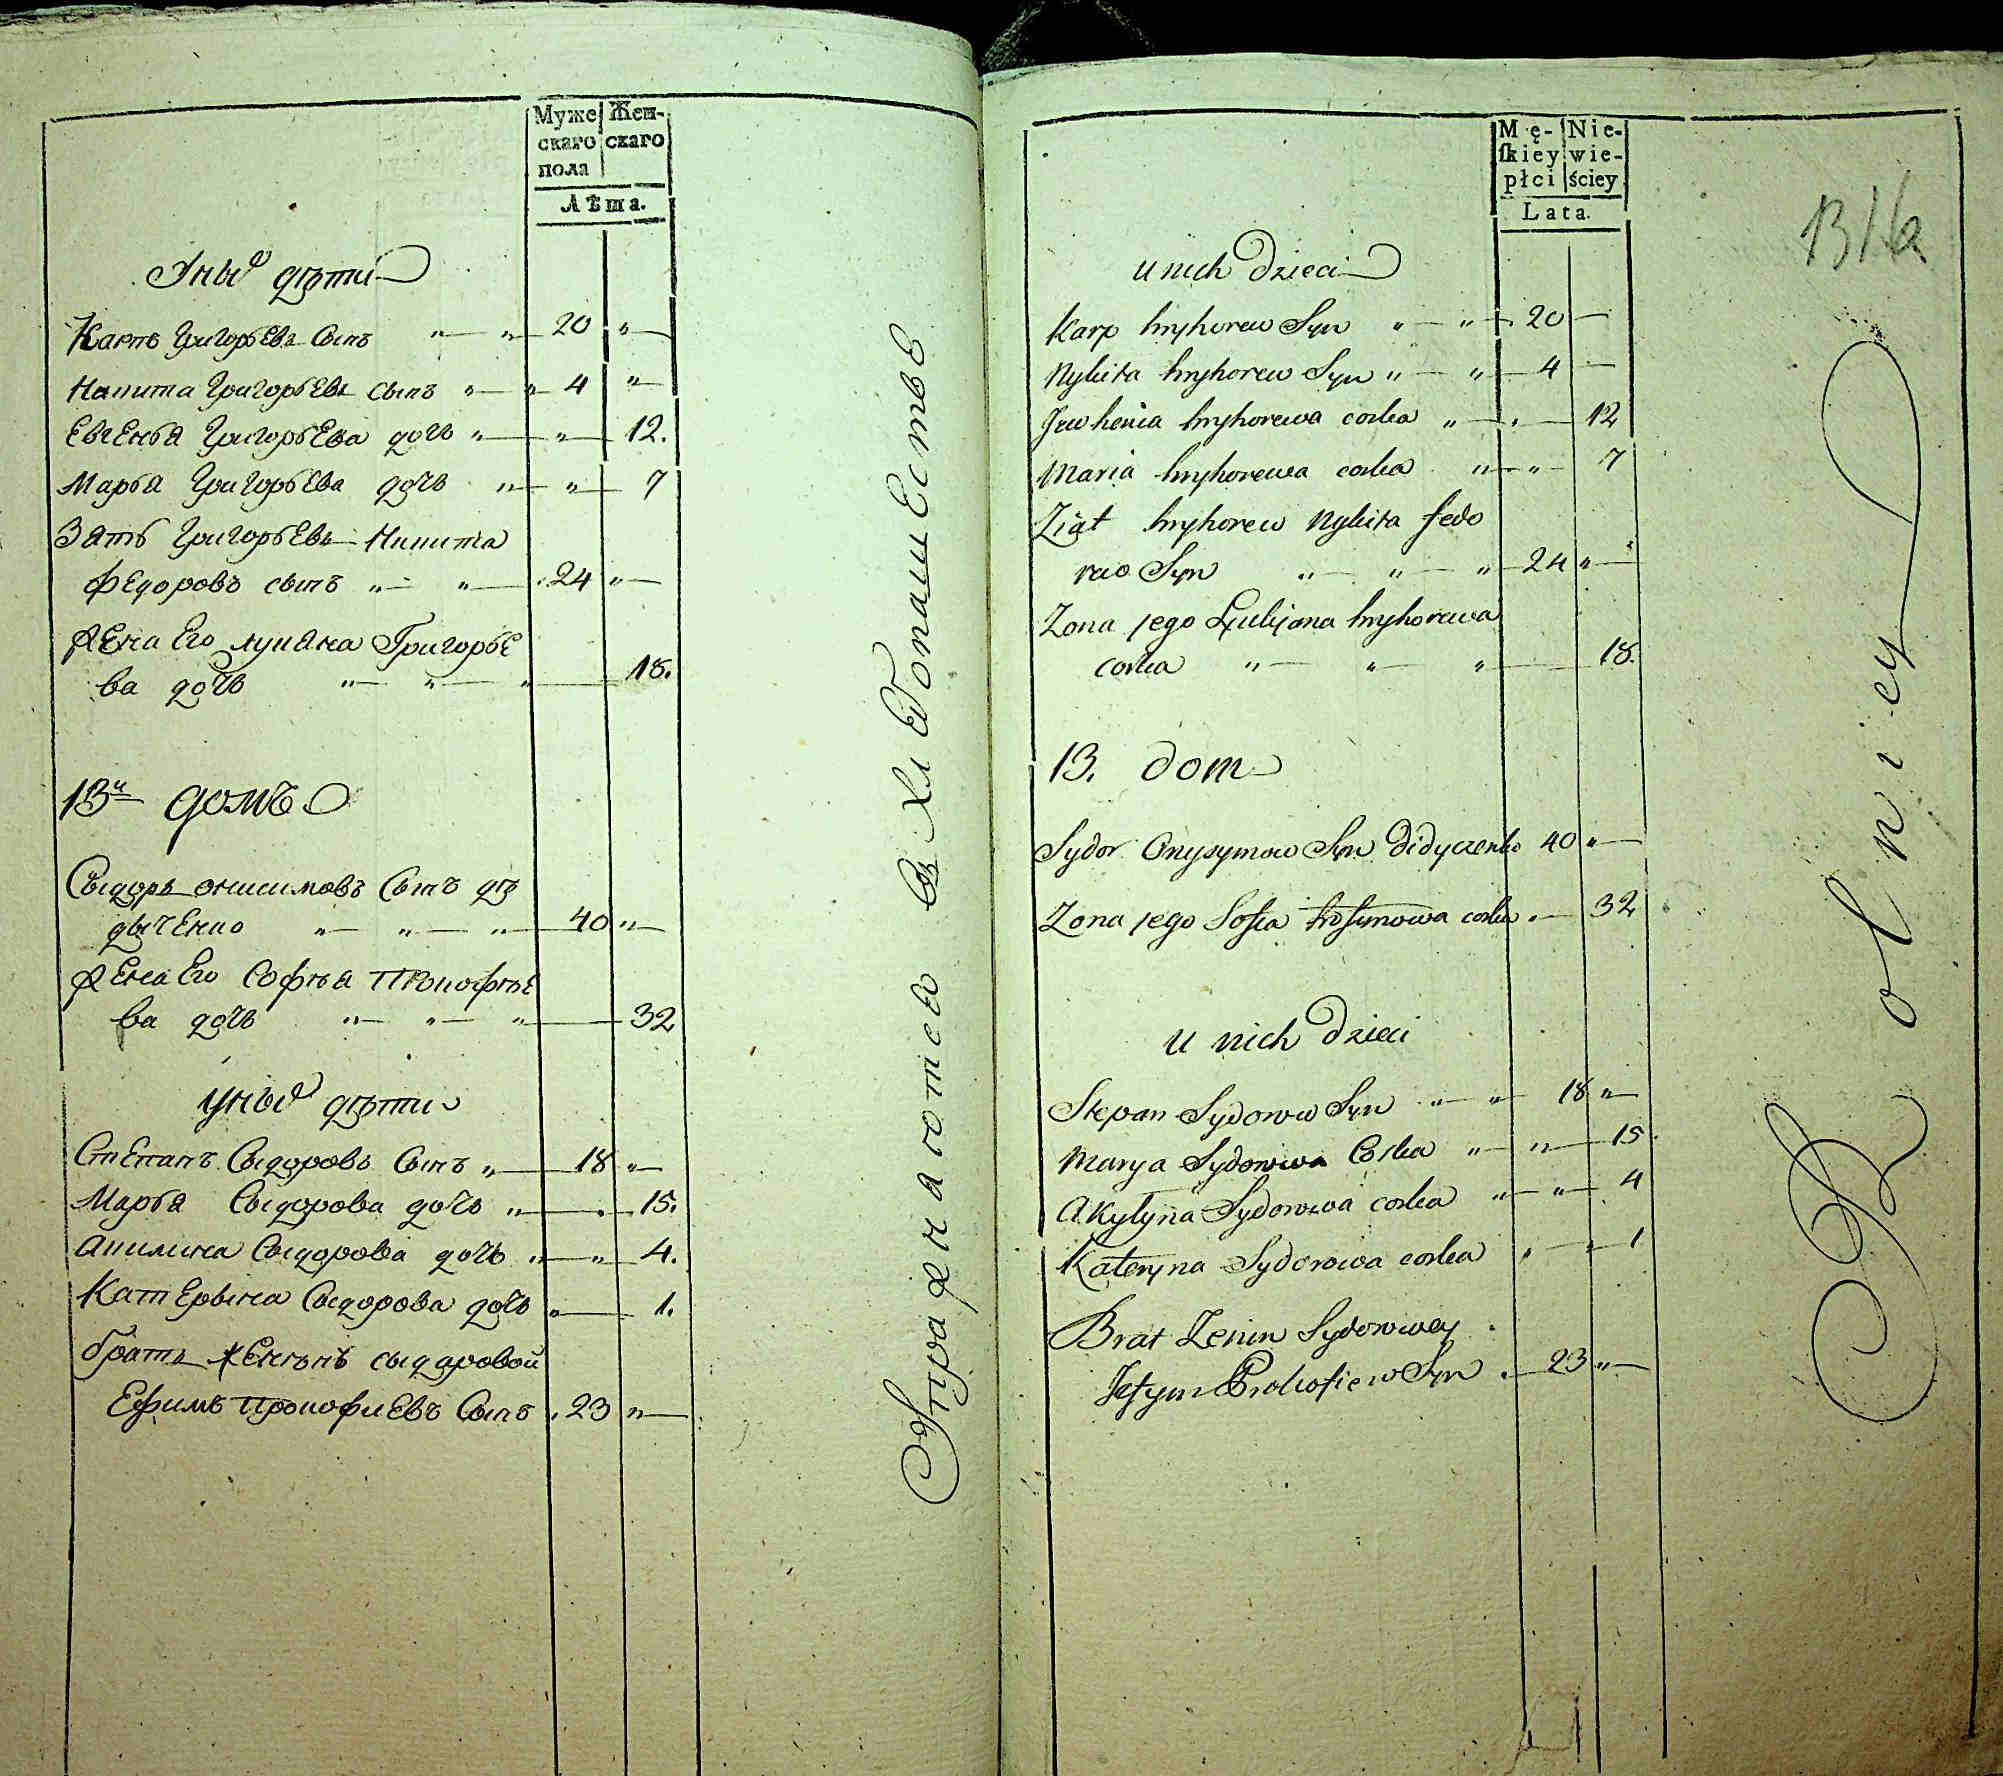 Муже Жен-
скаго скаго
пола
Лѣта.
У ныхъ дѣти
Карпъ Григорьевъ сынъ „ — „ 20 „ —
Никита Григорьевъ сынъ „ — „ 4 „ —
Евгенья Григорьева дочь „ — „ — 12.
Марья Григорьева дочь „ — „ — 7
Зять Григорьевъ Никита
Федоровъ сынъ „ — „ — 24 „ —
Жена Его лукяна Григорье
ва дочь „ — „ — „ — 18.
13й домъ
Сыдоръ онисимовъ Сынъ дѣ
дыченко „ — „ — „ — 40 „ —
Жена Его Софья Прокофье
ва дочь „ — „ — „ — 32
У ныхъ дѣти
Степанъ Сыдоровъ Сынъ „ — 18 „ —
Марья Сыдорова дочь „ — . — 15.
Акилина Сыдорова дочь „ — „ — 4.
Катерына Сыдорова дочь „ — 1.
братъ женынъ сыдоровой
Ефимъ Прокофиевъ Сынъ . 23 „ —
Упражняются въ хлѣбопашестве
Mę- Nie-
ſkiey wie-
płci ściey
Lata.
u nich dzieci
Karp hryhorew Syn „ — „ — 20 —
Nykita hryhorew Syn „ — „ — 4 —
Jewhenia hryhorewa corka „ — . — 12
Maria hryhorewa corka „ — „ — 7
Ziat hryhorew Nykita fedo
row Syn „ — „ — „ — 24 „ —
Zona jego Łukijana hryhorewa
corka „ — „ — „ — 18.
13. dom
Sydor Onysymow Syn Didyczenko 40 „ —
Zona jego Sofia Prokopowa corka . — 32
u nich dzieci
Stepan Sydorow Syn „ — „ — 18 „ —
Marya Sydorowa Corka „ — „ — 15.
Akylyna Sydorowa corka „ — „ — 4
Kateryna Sydorowa corka „ — „ 1
Brat Zenin Sydorowey
Jefym Prokofiew Syn . — 23 „ —
Rolniey